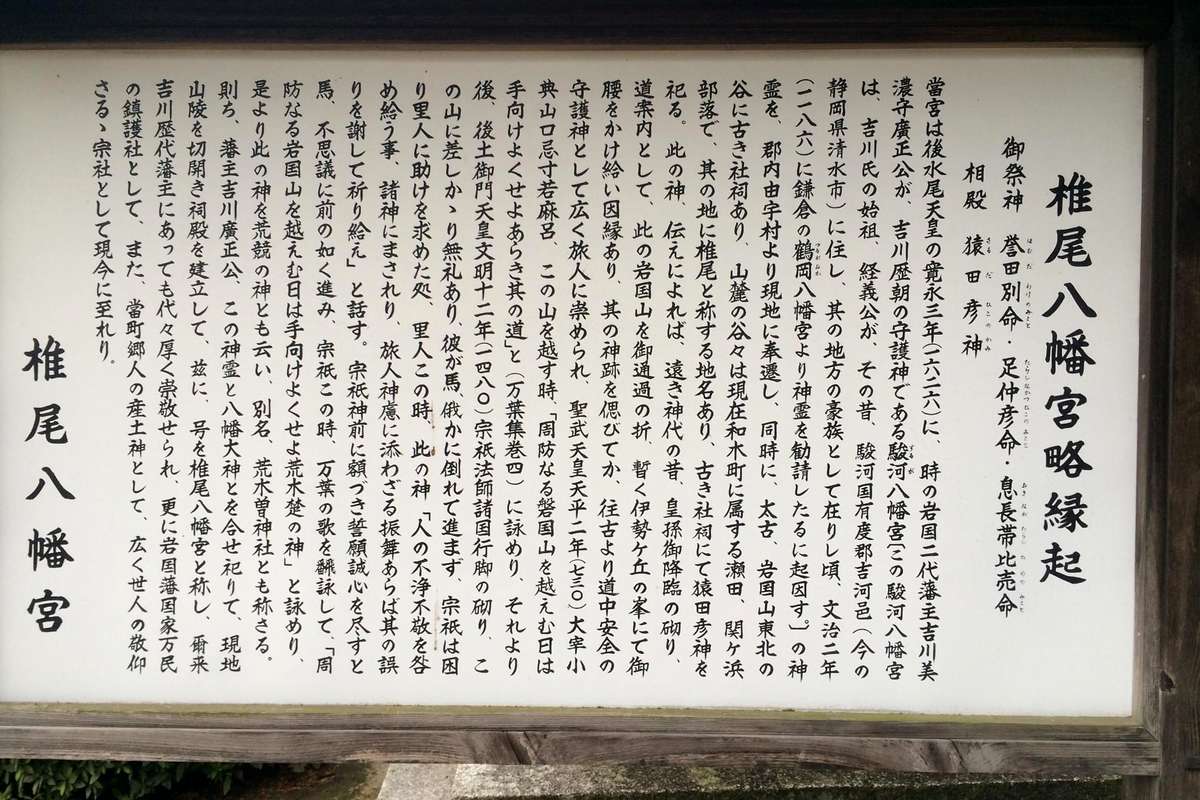 椎尾八幡宮略縁起
御祭神　誉田別命・足仲彦命・息長帯比売命
相殿　猿田彦神
當宮は後水尾天皇の寛永三年(一六二六)に、時の岩国二代藩主吉川美
濃守廣正公が、吉川歴朝の守護神である駿河八幡宮(この駿河八幡宮
は、吉川氏の始祖、経義公が、その昔、駿河国有度郡吉河邑(今の
静岡県清水市)に住し、其の地方の豪族として在りし頃、文治二年
(一一八六)に鎌倉の鶴岡八幡宮より神霊を勧請したるに起因す。)の神
霊を、郡内由宇村より現地に奉遷し、同時に、太古、岩国山東北の
谷に古き社祠あり、山麓の谷々は現在和木町に属する瀬田、関ヶ浜
部落で、其の地に椎尾と称する地名あり、古き社祠にて猿田彦神を
祀る。此の神、伝えによれば、遠き神代の昔、皇孫御降臨の砌り、
道案内として、此の岩国山を御通過の折、暫く伊勢ヶ丘の峯にて御
腰をかけ給い因縁あり、其の神跡を偲びてか、往古より道中安全の
守護神として広く旅人に崇められ、聖武天皇天平二年(七三〇)大宰小
典山口忌寸若麻呂、この山を越す時、「周防なる磐国山を越えむ日は
手向けよくせよあらき其の道」と(万葉集巻四)に詠めり、それより
後、後土御門天皇文明十二年(一四八〇)宗祇法師諸国行脚の砌り、こ
の山に差しかゝり無礼あり、彼が馬、俄かに倒れて進まず、宗祇は困
り里人に助けを求めた処、里人この時、此の神「人の不浄不敬を咎
め給う事、諸神にまされり、旅人神慮に添わざる振舞あらば其の誤
りを謝して祈り給え」と話す。宗祇神前に額づき誓願誠心を尽すと
馬、不思議に前の如く進み、宗祇この時、万葉の歌を飜詠して、「周
防なる岩国山を越えむ日は手向けよくせよ荒木楚の神」と詠めり、
是より此の神を荒競の神とも云い、別名、荒木曽神社とも称さる。
則ち、藩主吉川廣正公、この神霊と八幡大神とを合せ祀りて、現地
山陵を切開き祠殿を建立して、玆に、号を椎尾八幡宮と称し、爾来
吉川歴代藩主にあっても代々厚く崇敬せられ、更に岩国藩国家万民
の鎮護社として、また、當町郷人の産土神として、広く世人の敬仰
さるゝ宗社として現今に至れり。
椎尾八幡宮